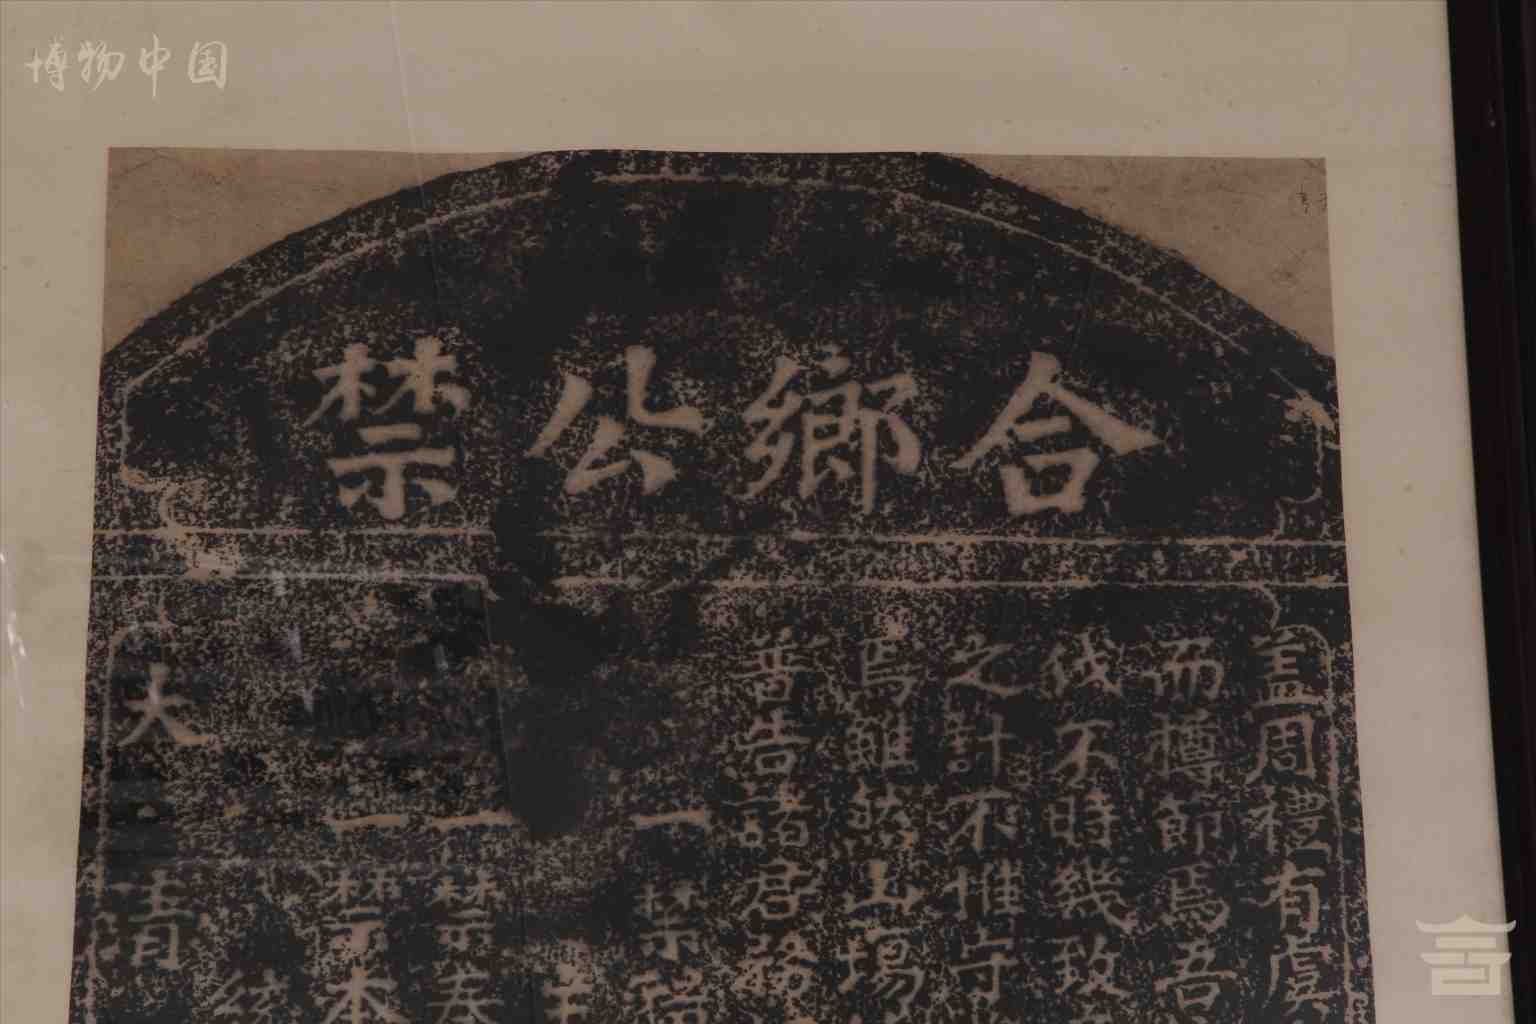 博物中国
合鄉公禁
蓋周禮有虞
而樽節焉吾
伐不時幾致
之計不惟守
焉雖然山場
普告諸君務
一禁
一禁春
一禁本
統
大清